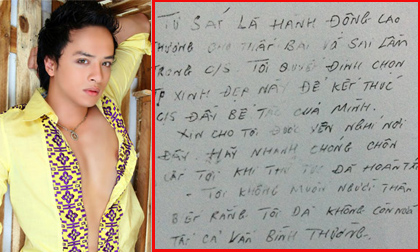 TỰ SÁT LÀ HÀNH ĐỘNG CAO
THƯỢNG CHO THẤT BẠI VÀ SAI LẦM
TRONG C/S TÔI QUYẾT ĐỊNH CHỌN
XINH ĐẸP NÀY ĐỂ KẾT THÚC
C/S ĐẦY BẾ TẮC CỦA MÌNH.
XIN CHO TÔI ĐƯỢC YÊN NGHỈ NƠI
ĐÂY. HÃY NHANH CHÓNG CHÔN
TÔI KHI TỤC ĐÃ HOÀN TẤT
- TÔI KHÔNG MUỐN NGƯỜI THÂN
BIẾT RẰNG TÔI ĐÃ KHÔNG CÒN NỮA
TẤT CẢ VẪN BÌNH THƯỜNG.